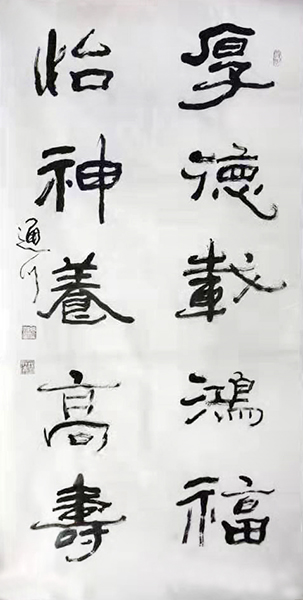 厚德載鴻福
怡神養高壽
通川